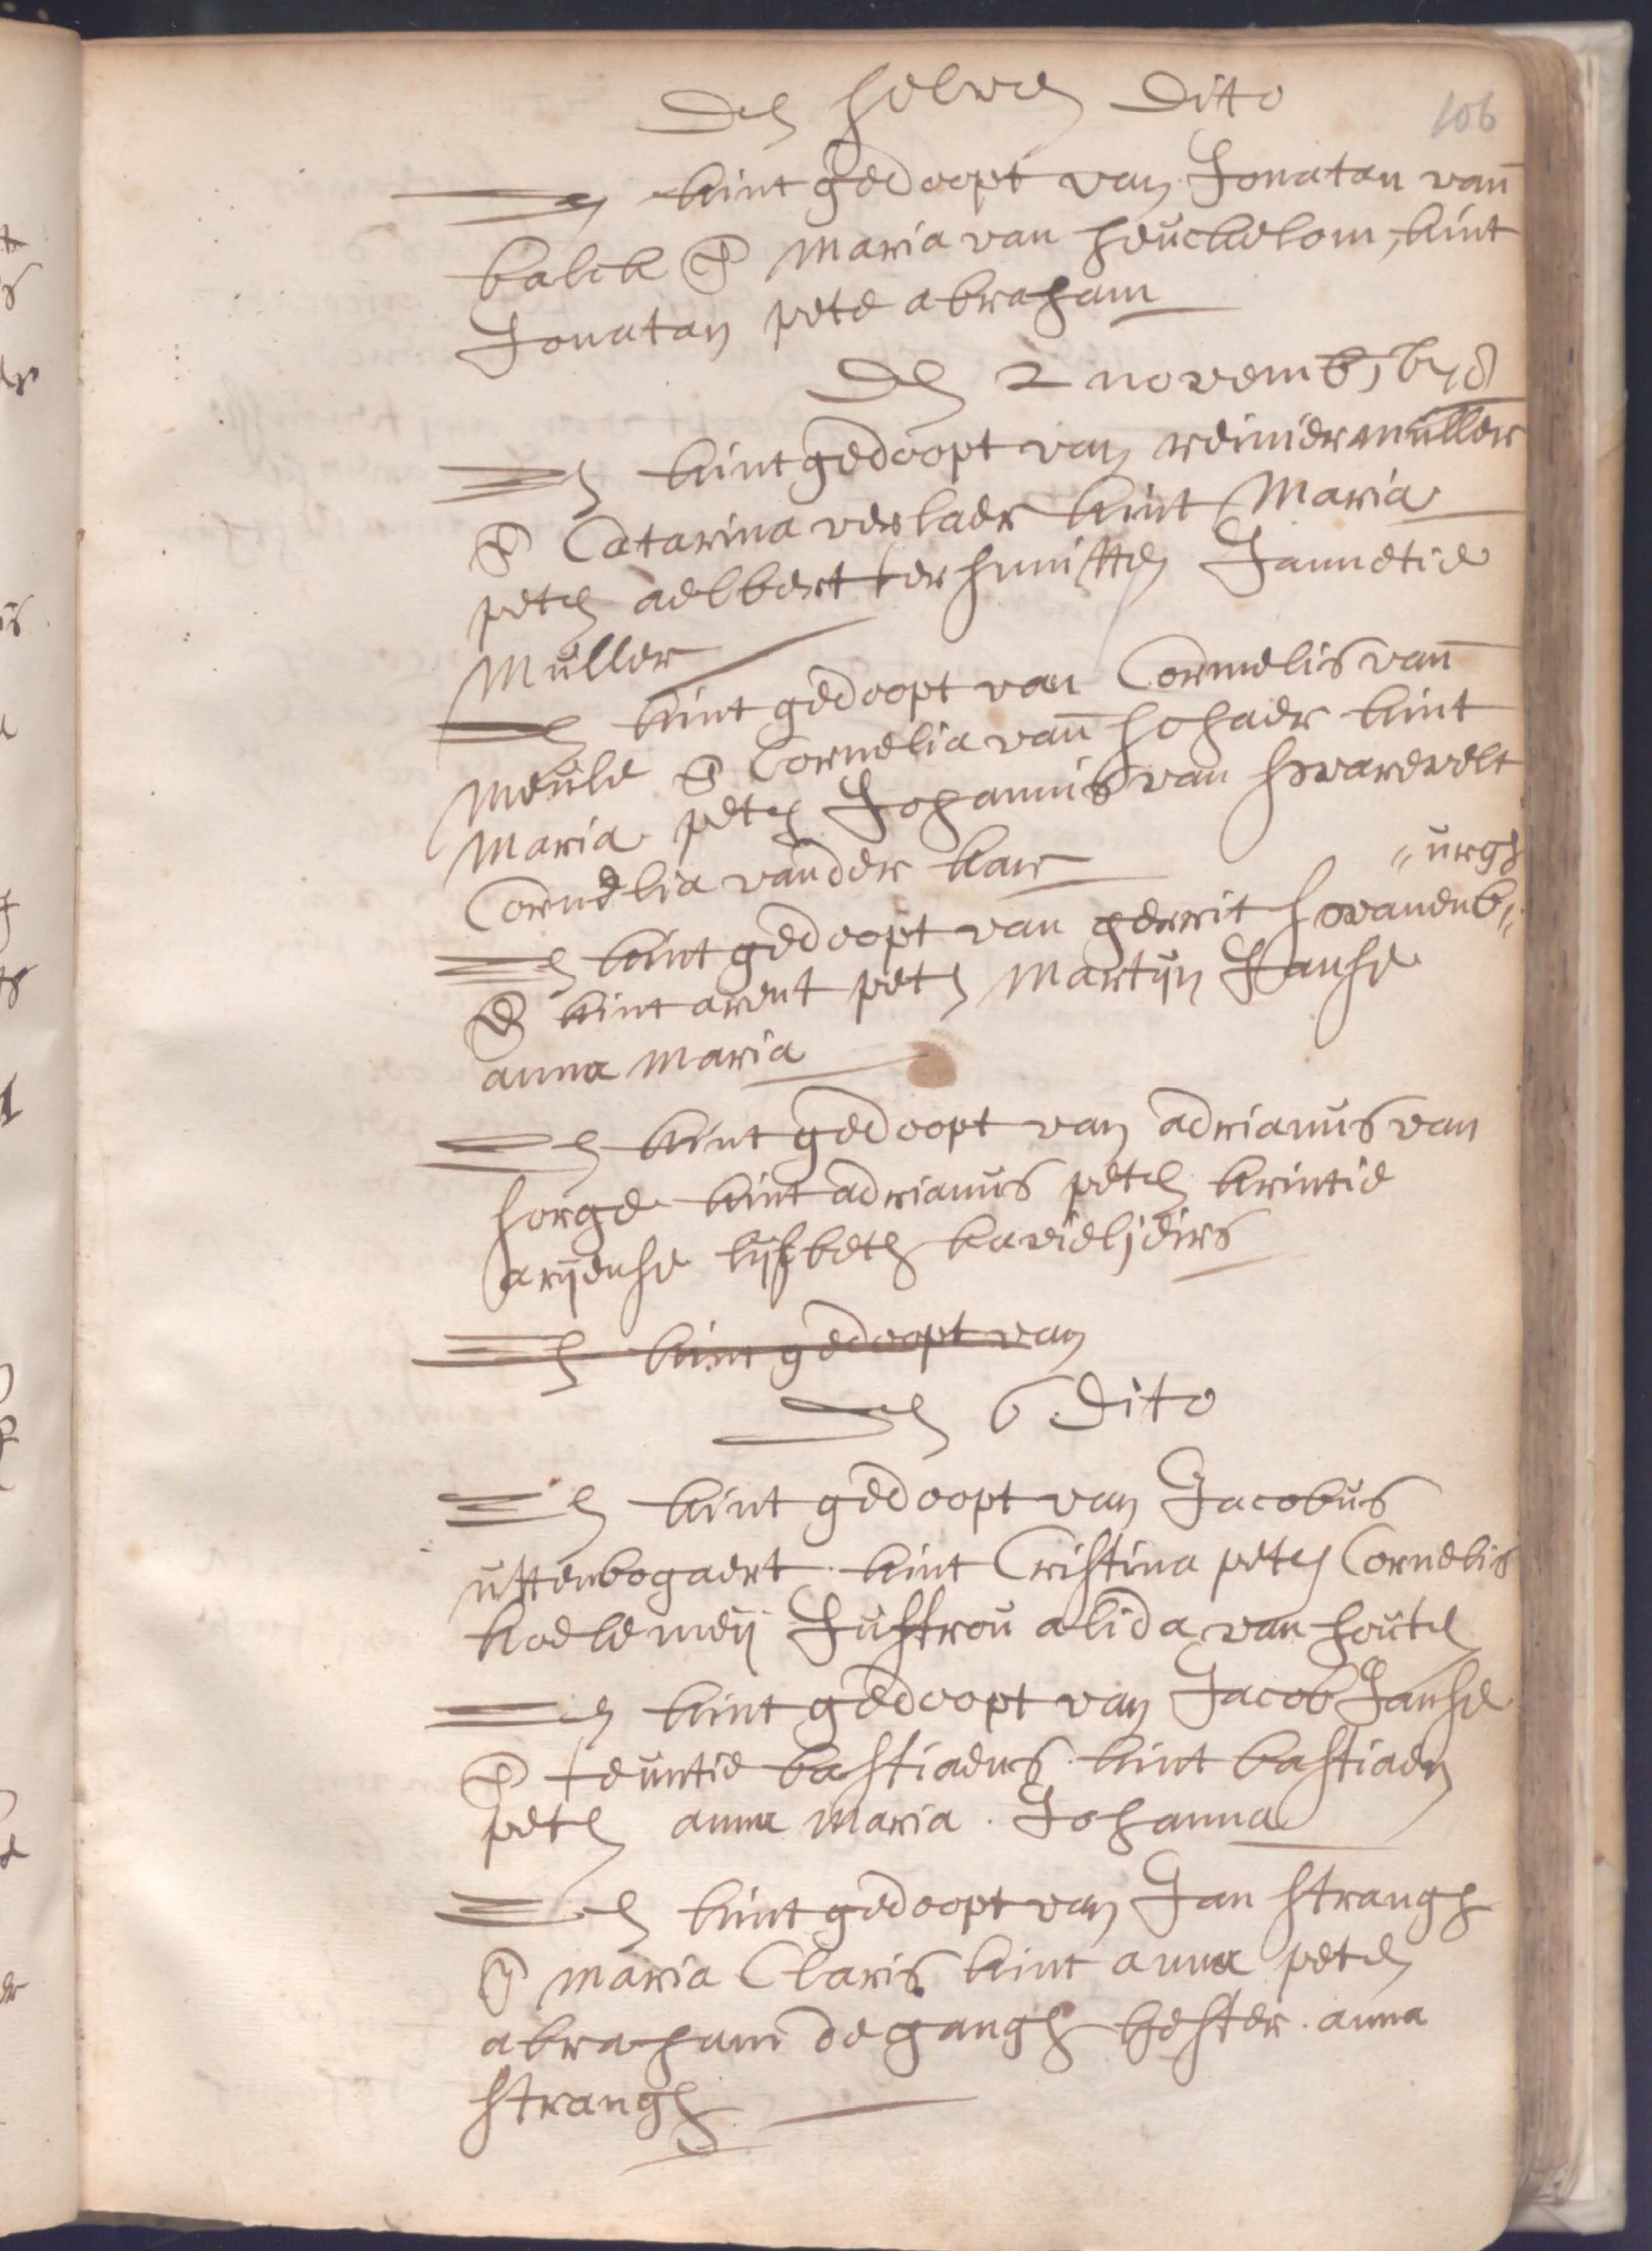 Den selven Dito
106
Een kint gedoopt van Jonatan van
balck & Maria van heuckelom, kint
Jonatan pete abraham
Den 2 novemb 1678
Een kint gedoopt van reinier muller
& Catarina verlaer kint Maria
peten aelbert ter smitten Jannetie
Muller
Een kint gedoopt van Cornelis van
Meule & Cornelia van schaer kint
Maria peten Johannis van swarevelt
Cornelia vander kar
„urgh
Een kint gedoopt van gerrit sovanenb„
& kint arent peten Martijn Janse
anna Maria
Een kint gedoopt van adrianus van
sorge kint adrianus peten krintie
arijense lijsbeten
Een kint gedoopt van
Den 6 Dito
Een kint gedoopt van Jacobus
uttenbogaert kint Cristina peten Cornelis
koeckemeij Juffrou alida van houten
Een kint gedoopt van Jacob Janse
& teuntie bastiaens kint bastiaen
peten anna Maria Johanna
Een kint gedoopt van Jan strangh
& Maria Claris kint anna peten
abraham de gangh hester anna
strangh